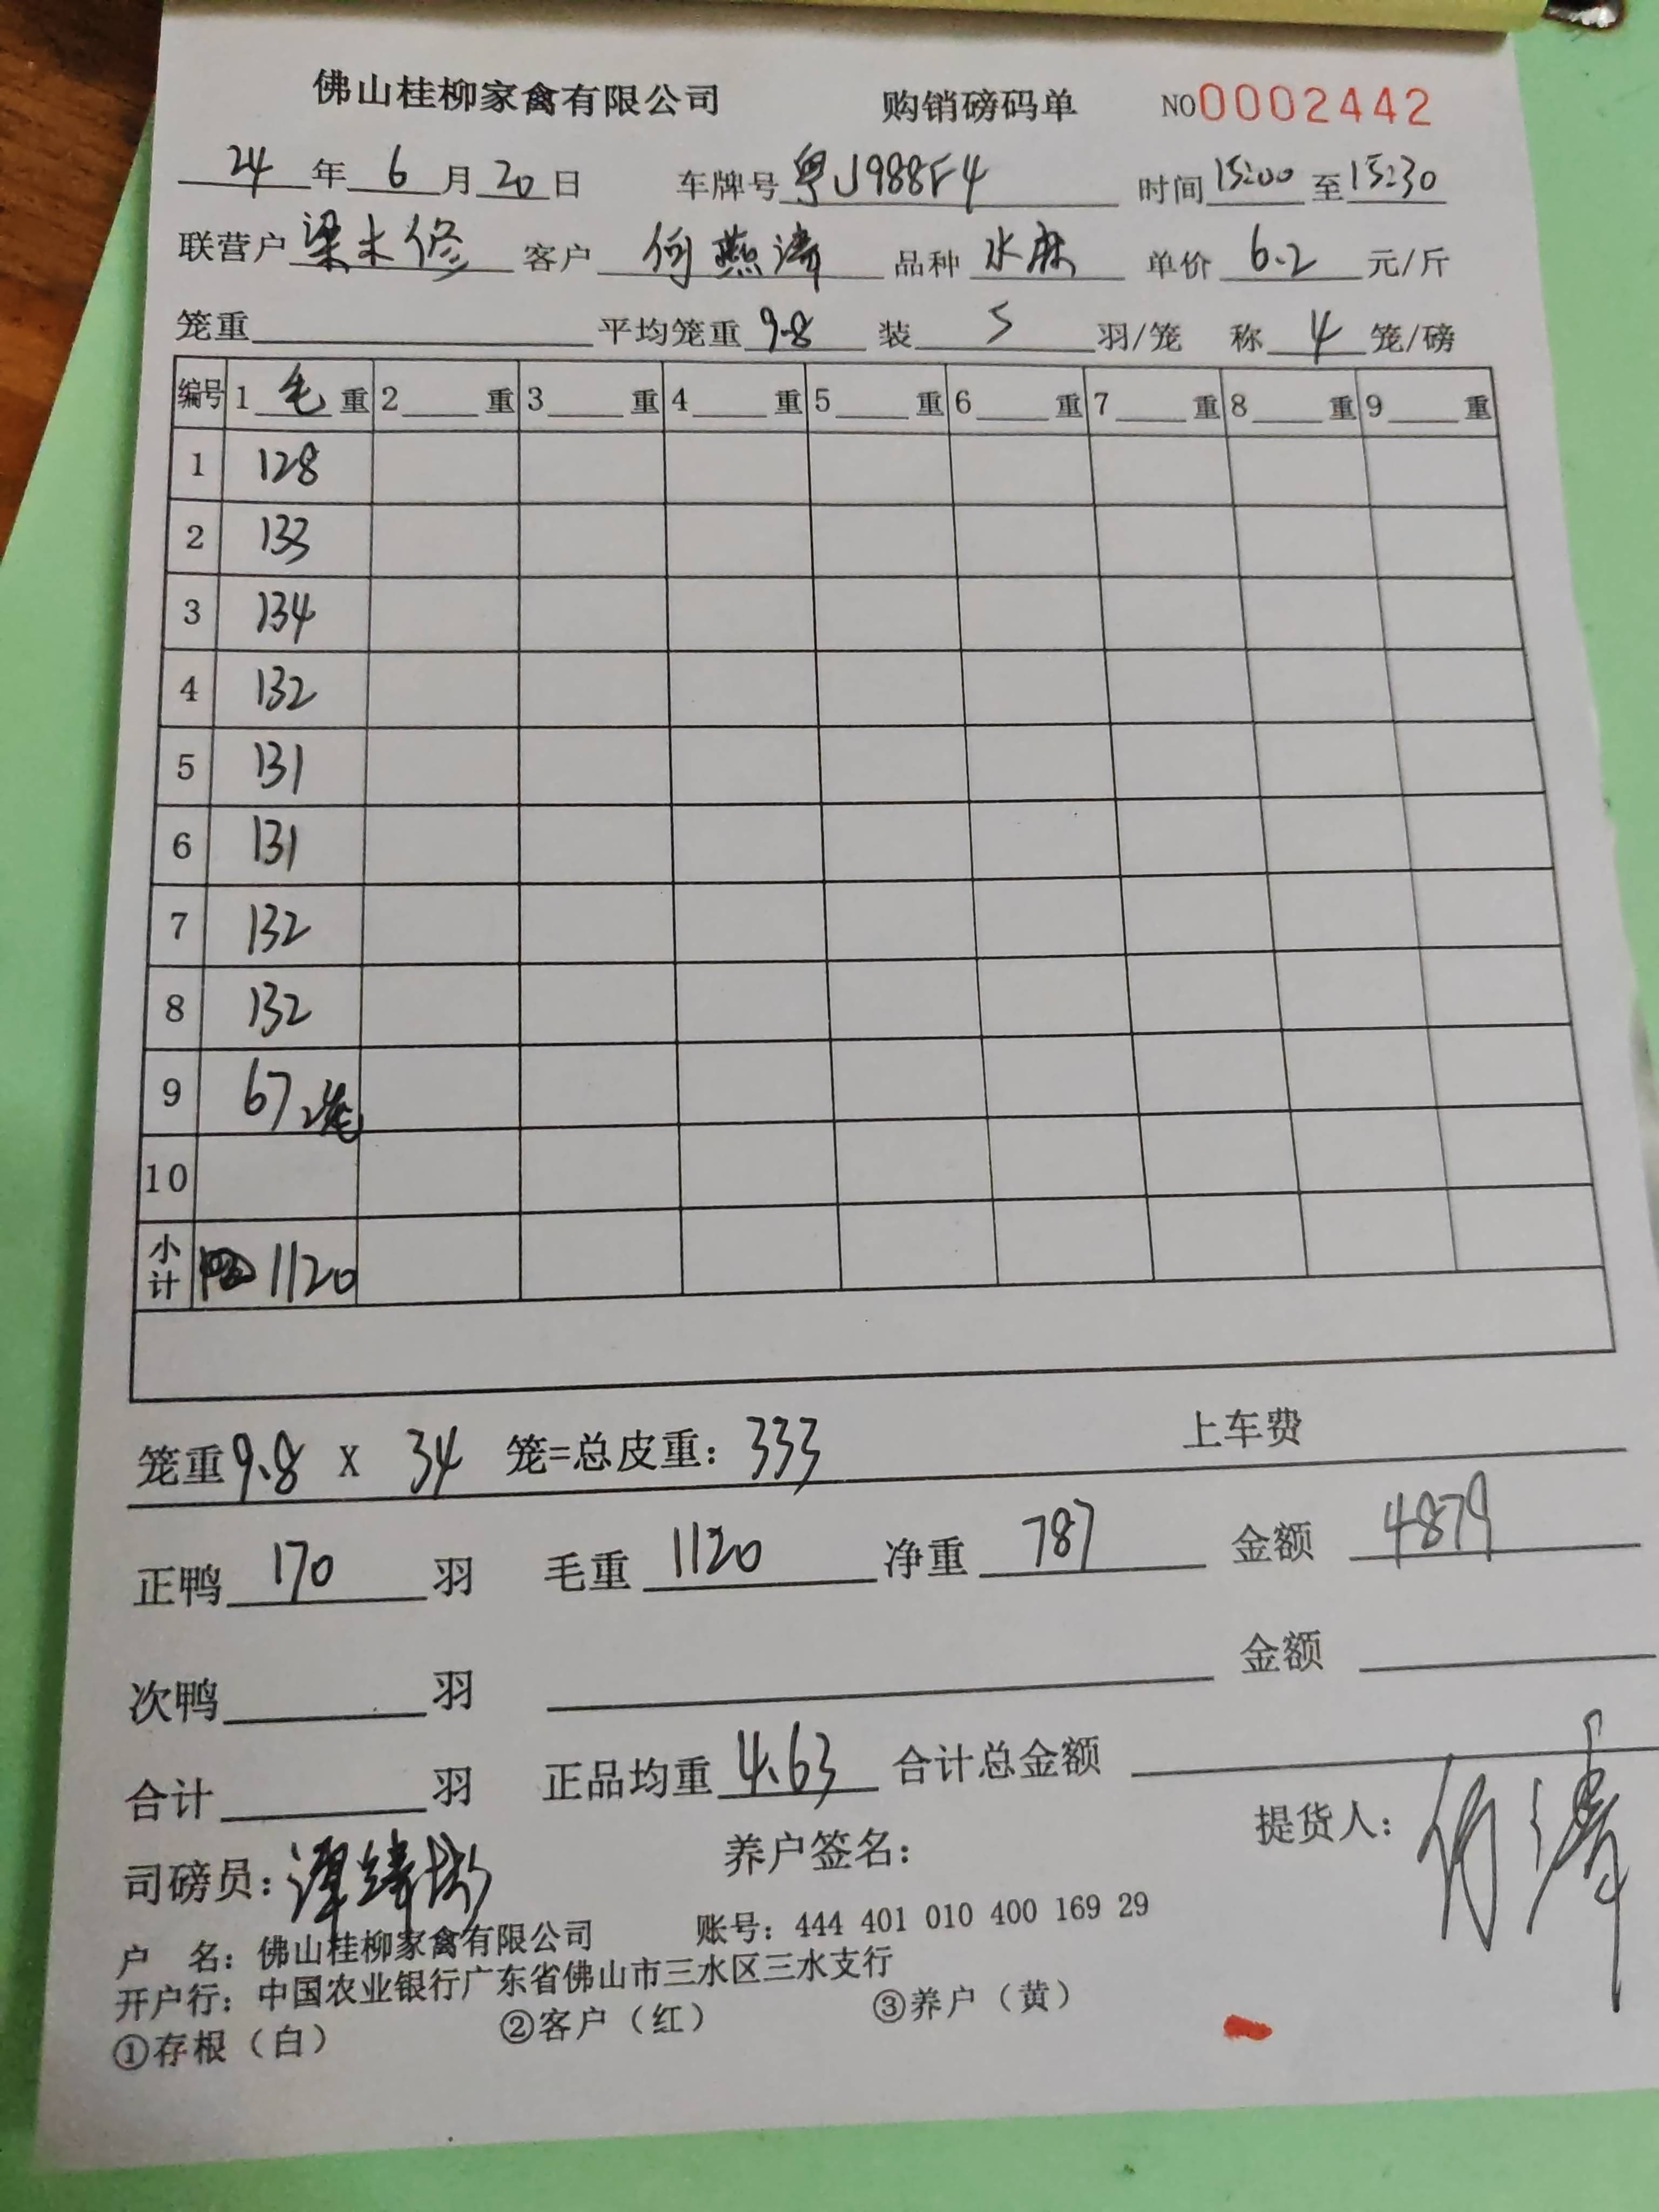 佛山桂柳家禽有限公司 购销磅码单 NO0002442
24年6月20日 车牌号粤J988F4 时间15:00至15:30
联营户梁木修 客户何燕涛 品种水麻 单价6.2元/斤
笼重 平均笼重9.8 装5羽/笼 称4笼/磅
编号 1毛重 2重 3重 4重 5重 6重 7重 8重 9重
1 128
2 133
3 134
4 132
5 131
6 131
7 132
8 132
9 67 2笼
10
小计 1120
笼重9.8 X 34 笼=总皮重：333 上车费
正鸭170羽 毛重1120 净重787 金额4879
次鸭 羽 金额
合计 羽 正品均重4.63 合计总金额
司磅员： 养户签名： 提货人：何涛
户 名：佛山桂柳家禽有限公司 账号：444 401 010 400 169 29
开户行：中国农业银行广东省佛山市三水区三水支行
①存根（白） ②客户（红） ③养户（黄）